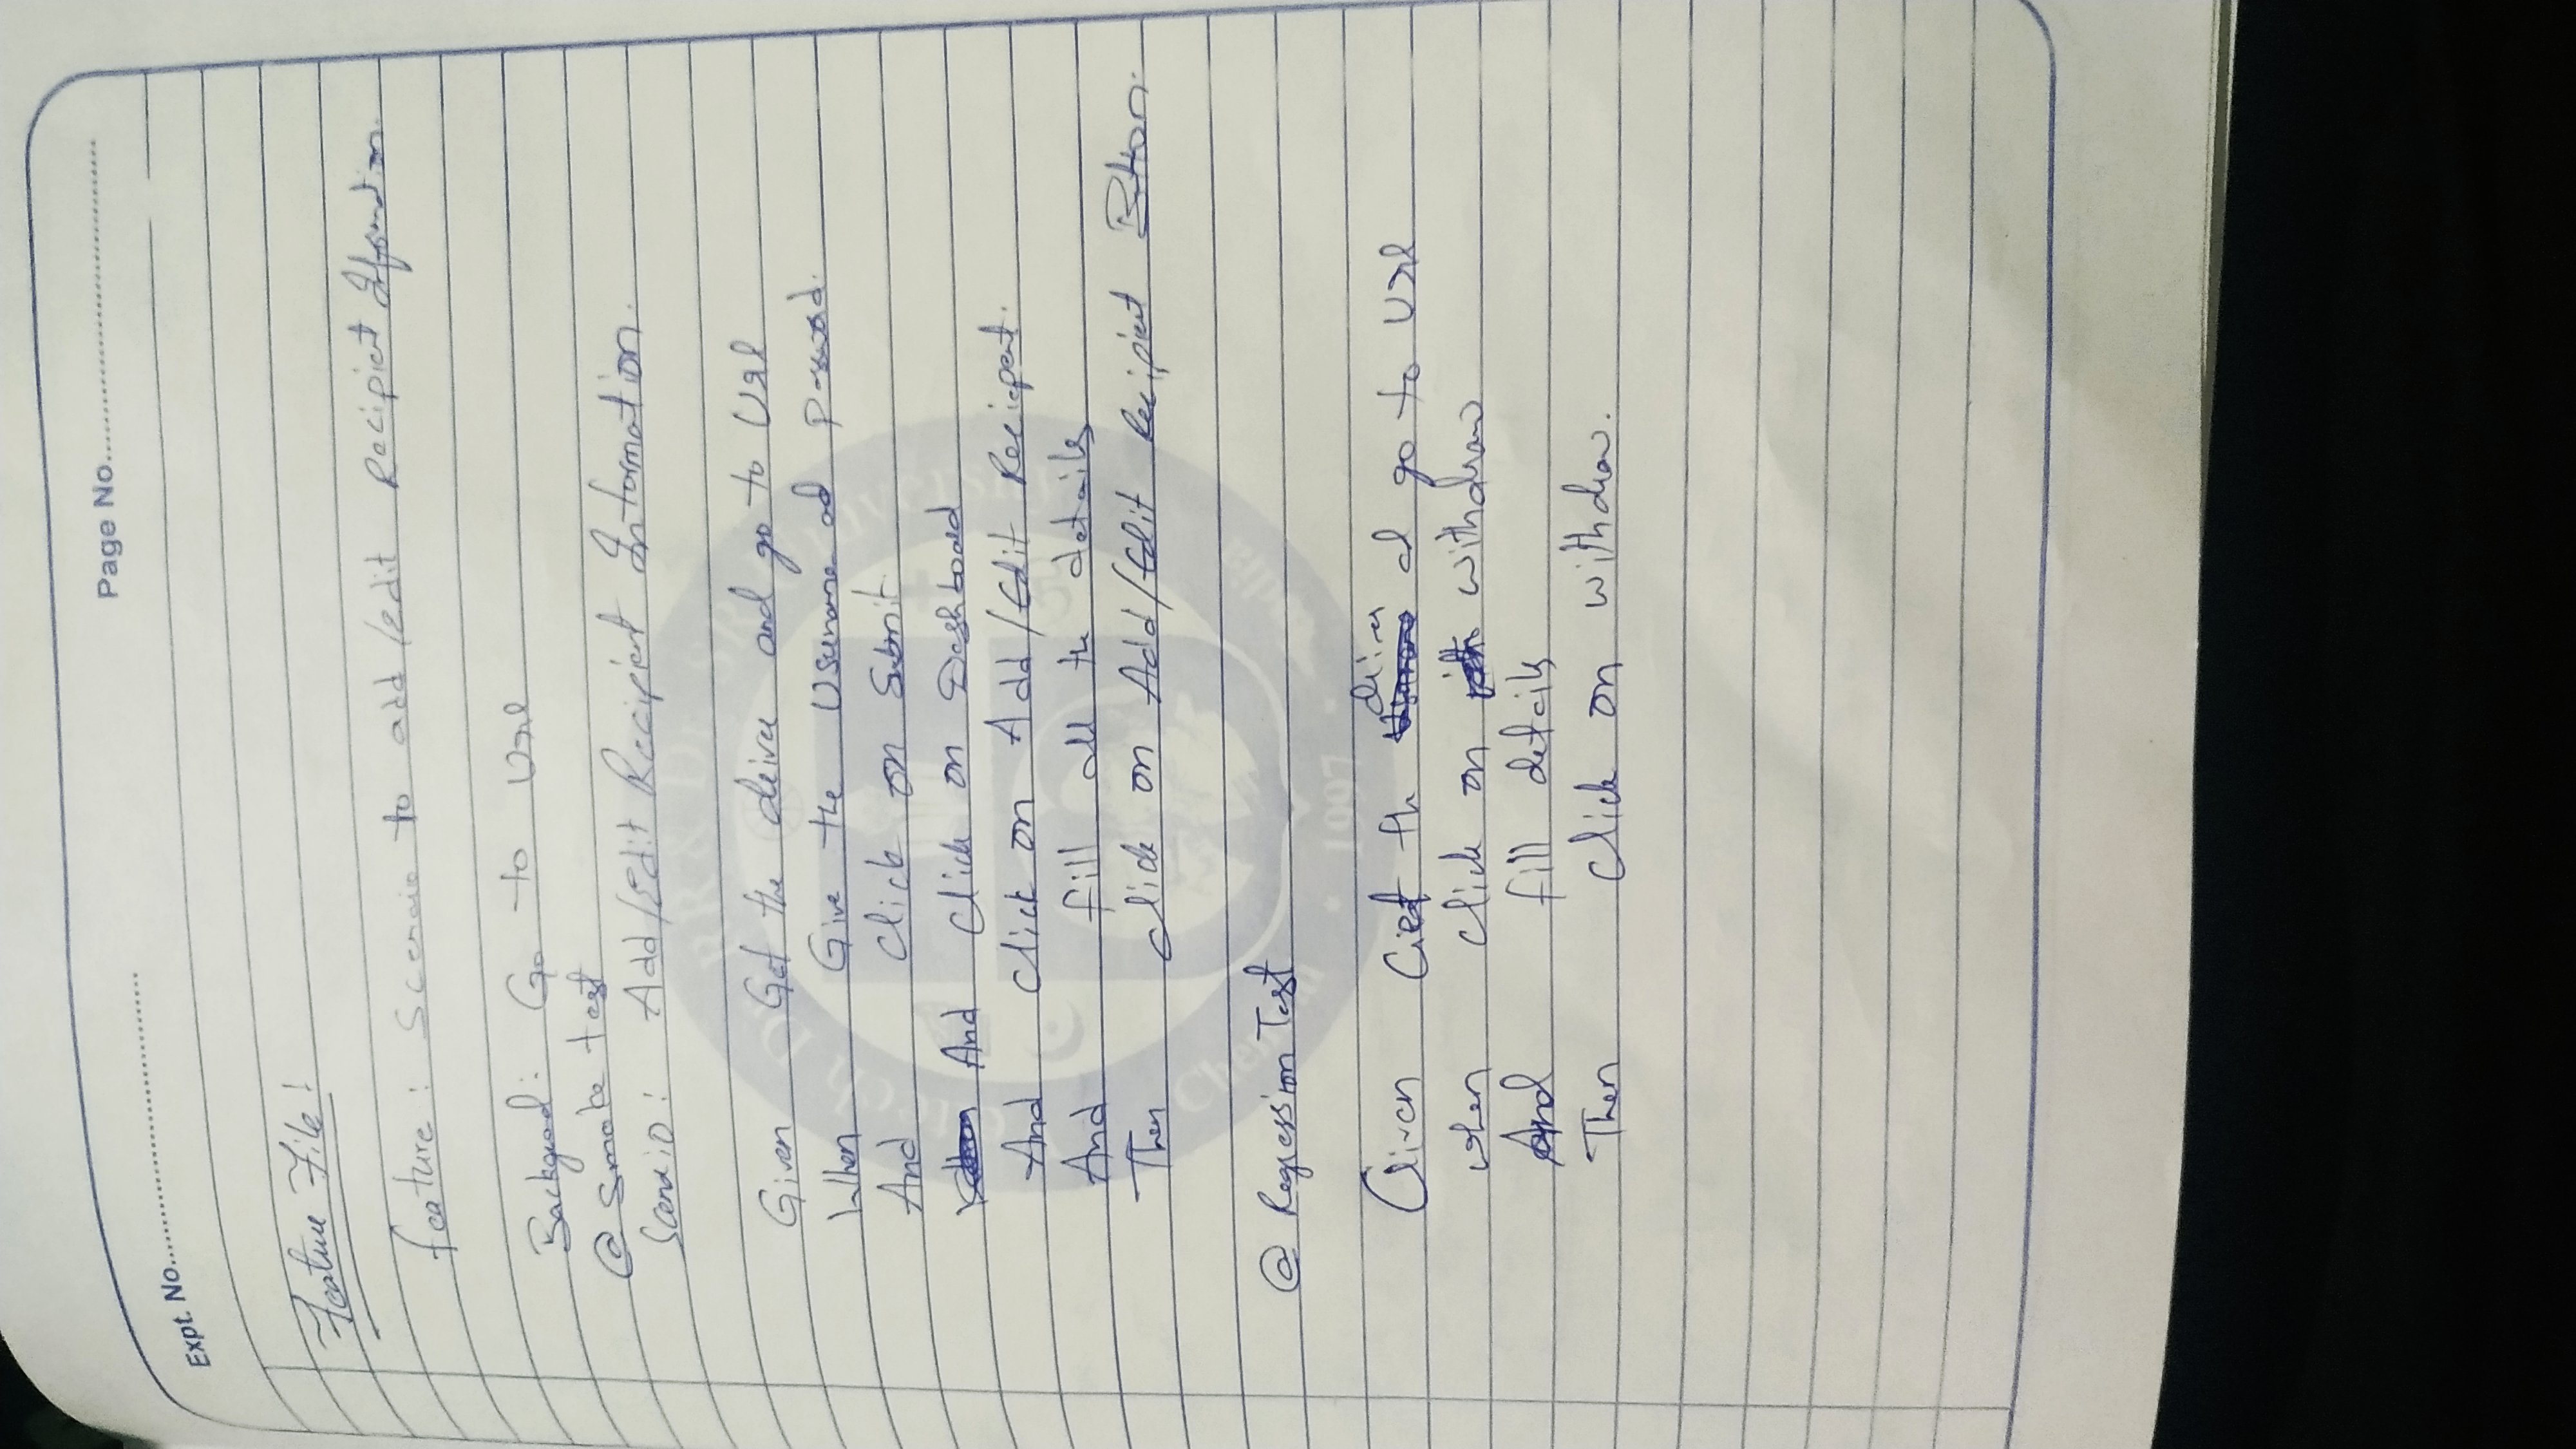 Expt. No.
Page No.
Feature File!
Feature : Scenaio to add /edit Recipient Information.
Backgroud: Go to Url
@ Smoke test
Scenaio: Add/Edit Recipient Information.
Given Get the driver and go to Url
When Give the Username ad password.
And Click on Submit
And Click on Dashboard
And Click on Add/Edit Reciepent.
And fill all the details
Then click on Add/Edit Recipient Button.
@ Regression Test
driver
Given Get th go to Url
when click on withdraw
And fill details
Then click on withdraw.
1997